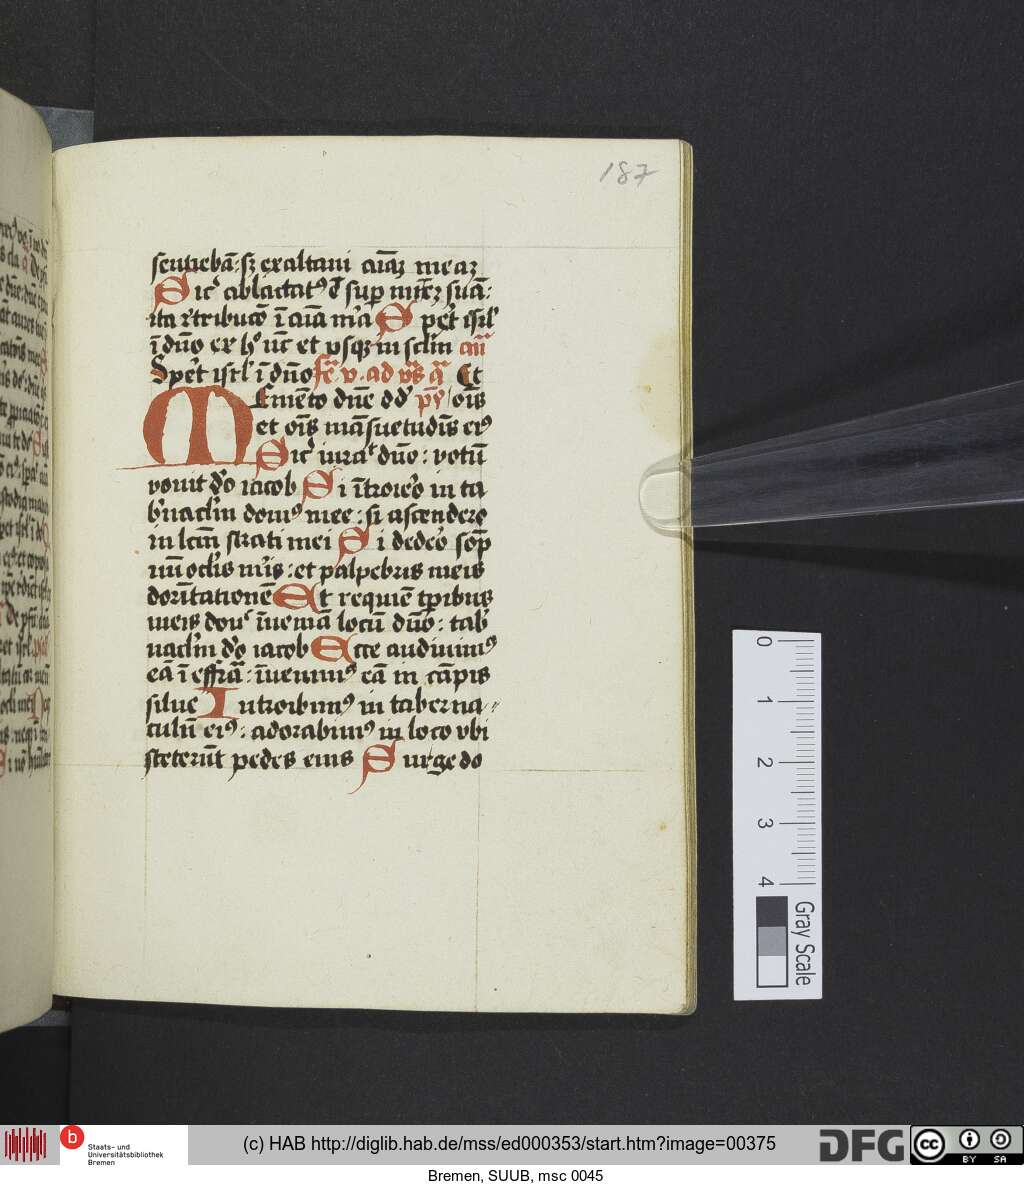 187
sentiebā: sꝫ exaltaui aīaꝫ meaꝫ
Sicͬ ablactatꝰ ē sup mrēꝫ suā:
ita rͤtribucō ī aīa mͤa Speͬt isrͤl
ī dn̄o ex hͦ nūc et vsqꝫ in sclm an̄
Speͬt isrͤl ī dn̄o fͤr v. ad vs̄ aͣ Et
Memēto dn̄e dd̄ ps̄ oīs
et oīs māsuetudīs eiꝰ
Sicͬ iuraͭ dn̄o: votū
vouit dͦo iacob Si ītroieͦo in ta
bͤnaclm domꝰ mee: si ascendeͦo
in lctm̄ strati mei Si dedeͦo sōp
nū oclīs mͤis: et palpebris meis
dormītationē Et requiē tp̄ibus
meis doneͨ īueniā locū dn̄o: tabͤ
naclm dͦo iacob Ecce audiuimꝰ
eā ī effrāͣ: īuenimꝰ eā in cāpis
silue Introibimꝰ in taberna-
culū eiꝰ: adorabimꝰ in loco vbi
steterūt pedes eius Surge do
0 1 2 3 4
Gray Scale
b Staats- und
Universitätsbibliothek
Bremen
(c) HAB http://diglib.hab.de/mss/ed000353/start.htm?image=00375
DFG
cc BY SA
Bremen, SUUB, msc 0045